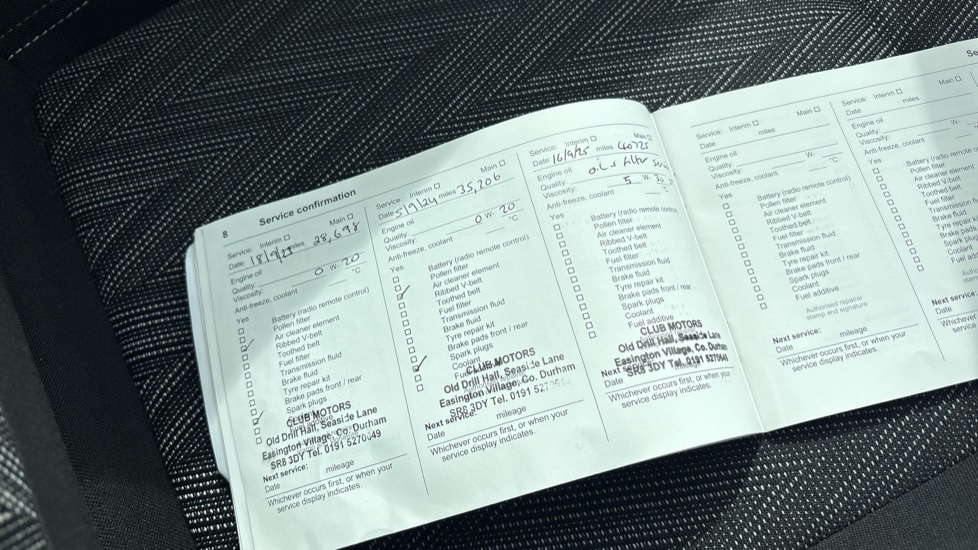 8 Service confirmation
Service: Interim ☐ Main ☐
Date 18/9/23 miles 28,698
Engine oil
Quality:
Viscosity: 0 W- 20
Anti-freeze, coolant °C
Yes
Battery (radio remote control)
Pollen filter
Air cleaner element
Ribbed V-belt
Toothed belt
Fuel filter
Transmission fluid
Brake fluid
Tyre repair kit
Brake pads front / rear
Spark plugs
CLUB MOTORS
Old Drill Hall, Seaside Lane
Easington Village, Co. Durham
SR8 3DY Tel. 0191 5270649
Next service:
Date mileage
Whichever occurs first, or when your
service display indicates.
Service: Interim ☐ Main ☐
Date 5/9/24 miles 35,206
Engine oil
Quality:
Viscosity: 0 W- 20
Anti-freeze, coolant °C
Yes
Battery (radio remote control)
Pollen filter
Air cleaner element
Ribbed V-belt
Toothed belt
Fuel filter
Transmission fluid
Brake fluid
Tyre repair kit
Brake pads front / rear
Spark plugs
Coolant
CLUB MOTORS
Old Drill Hall, Seaside Lane
Easington Village, Co. Durham
SR8 3DY Tel. 0191
Next service:
Date mileage
Whichever occurs first, or when your
service display indicates.
Service: Interim ☐ Main ☐
Date 16/9/25 miles 40725
Engine oil oil & filter
Quality:
Viscosity: 5 W-
Anti-freeze, coolant
Yes
Battery (radio remote control)
Pollen filter
Air cleaner element
Ribbed V-belt
Toothed belt
Fuel filter
Transmission fluid
Brake fluid
Tyre repair kit
Brake pads front / rear
Spark plugs
Coolant
Fuel additive
CLUB MOTORS
Old Drill Hall, Seaside Lane
Easington Village, Co. Durham
SR8 3DY Tel. 0191
Next
Date
Whichever occurs first, or when your
service display indicates.
Service: Interim ☐ Main ☐
Date miles
Engine oil
Quality:
Viscosity: W-
Anti-freeze, coolant °C
Yes
Battery (radio remote control)
Pollen filter
Air cleaner element
Ribbed V-belt
Toothed belt
Fuel filter
Transmission fluid
Brake fluid
Tyre repair kit
Brake pads front / rear
Spark plugs
Coolant
Fuel additive
Authorised repairer
stamp and signature
Next service:
Date mileage
Whichever occurs first, or when your
service display indicates.
Service: Interim ☐ Main ☐
Date miles
Engine oil
Quality:
Viscosity: W-
Anti-freeze, coolant
Yes
Battery (radio remote
Pollen filter
Air cleaner element
Ribbed V-belt
Toothed belt
Fuel filter
Transmission
Brake fluid
Tyre repair
Brake pads
Spark
Coolant
Fuel
Next service:
Date
Whichever
service